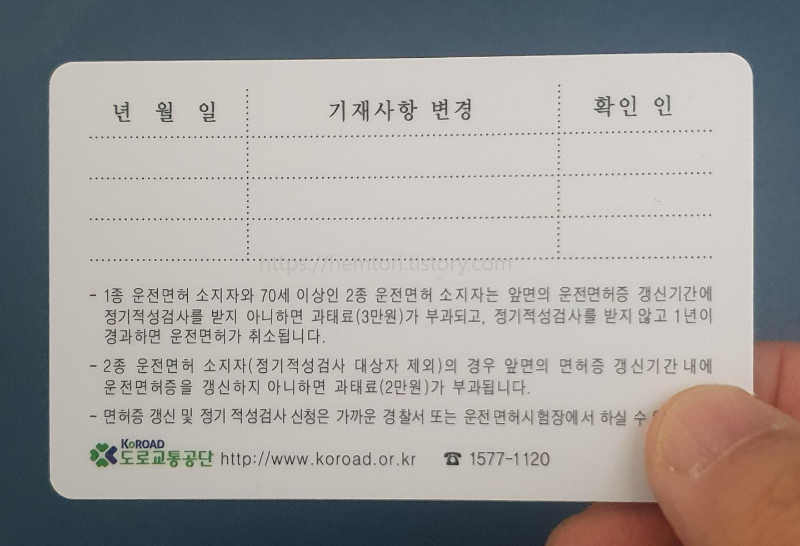 년 월 일 기재사항 변경 확인 인
https://hemtori.tistory.com
- 1종 운전면허 소지자와 70세 이상인 2종 운전면허 소지자는 앞면의 운전면허증 갱신기간에
정기적성검사를 받지 아니하면 과태료(3만원)가 부과되고, 정기적성검사를 받지 않고 1년이
경과하면 운전면허가 취소됩니다.
- 2종 운전면허 소지자(정기적성검사 대상자 제외)의 경우 앞면의 면허증 갱신기간 내에
운전면허증을 갱신하지 아니하면 과태료(2만원)가 부과됩니다.
- 면허증 갱신 및 정기 적성검사 신청은 가까운 경찰서 또는 운전면허시험장에서 하실 수
KoROAD
도로교통공단 http://www.koroad.or.kr ☎ 1577-1120